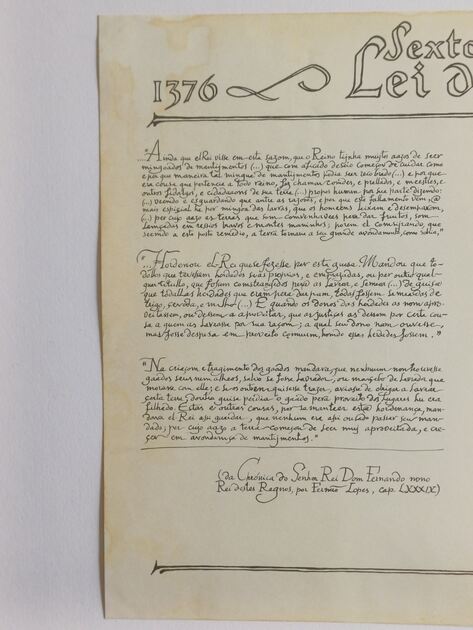 1376
Sexto
Lei d
"Ainda que elRei visse em esta sazom, que o Reino tijnha muytos aazos de seer
minguado de mantijmentos (...) que com aficado desejo começou de cuidar como
e per que maneira tal mingua de mantijmentos podia ser recobrado (...) e por que
era cousa que pertencia a todo reino, fez chamar condes, e prellados, e meestres, e
outros fidalgos, e cidadaãos de sua terra (...) propoz por sua parte dizendo:
(...) veendo e esguardando que antre as razoões, e por que este fallimento vem
mais espicial he per mingoa das lavras, que os homeens leixam e desemparam,
(...) per cujo aazo as terras que som convenhavees pera dar fruitos, som
lançadas em ressios bravos e montes maninhos; porem el conssirando, que
seemdo a esto posto remedio, a terra tornaria a seu grande avondamento, como sohia,"
"...Hordenou el Rei que se fezesse per esta guisa. Mandou que to-
dollos que tevessem herdades suas proprias, e emprazadas, ou per outro qual-
quer titullo, que fossem constrangidos pera as lavrar, e semear (...) de guisa
que todallas herdades que eram pera dar pam, todas fossem semeadas de
trigo, cevada, e milho (...) E quando os donos das herdades as nom apro-
veitassem, ou dessem a aproveitar, que as justiças as dessem por certa cou-
sa a quem as lavrasse por sua razom; a qual seu dono nom ouvesse,
mas fosse despesa em proveito comuum, honde essas herdades fossem."
"Na criaçom e tragimento dos gaados mandava, que nenhuum nom trouvesse
gaados seus nem alheos, salvo se fosse lavrador, ou mançebo de lavrador, que
morasse com elle; e se os outrem quisesse trazer, aviasse de obrigar a lavrar
certa terra, doutra guisa perdia o gaado pera proveito dos lugares hu era
filhado. Estas e outras cousas, por se manteer esta hordenança, man-
dava el Rei assi guardar, que nenhuum era assi ousado passar seu man-
dado; per cujo aazo a terra começou de seer muy aproveitada, e cre-
çer em avondança de mantijmentos."
(da Chrónica do Senhor Rei Dom Fernando nono
Rei destes Regnos, por Fernão Lopes, cap. LXXXIX)